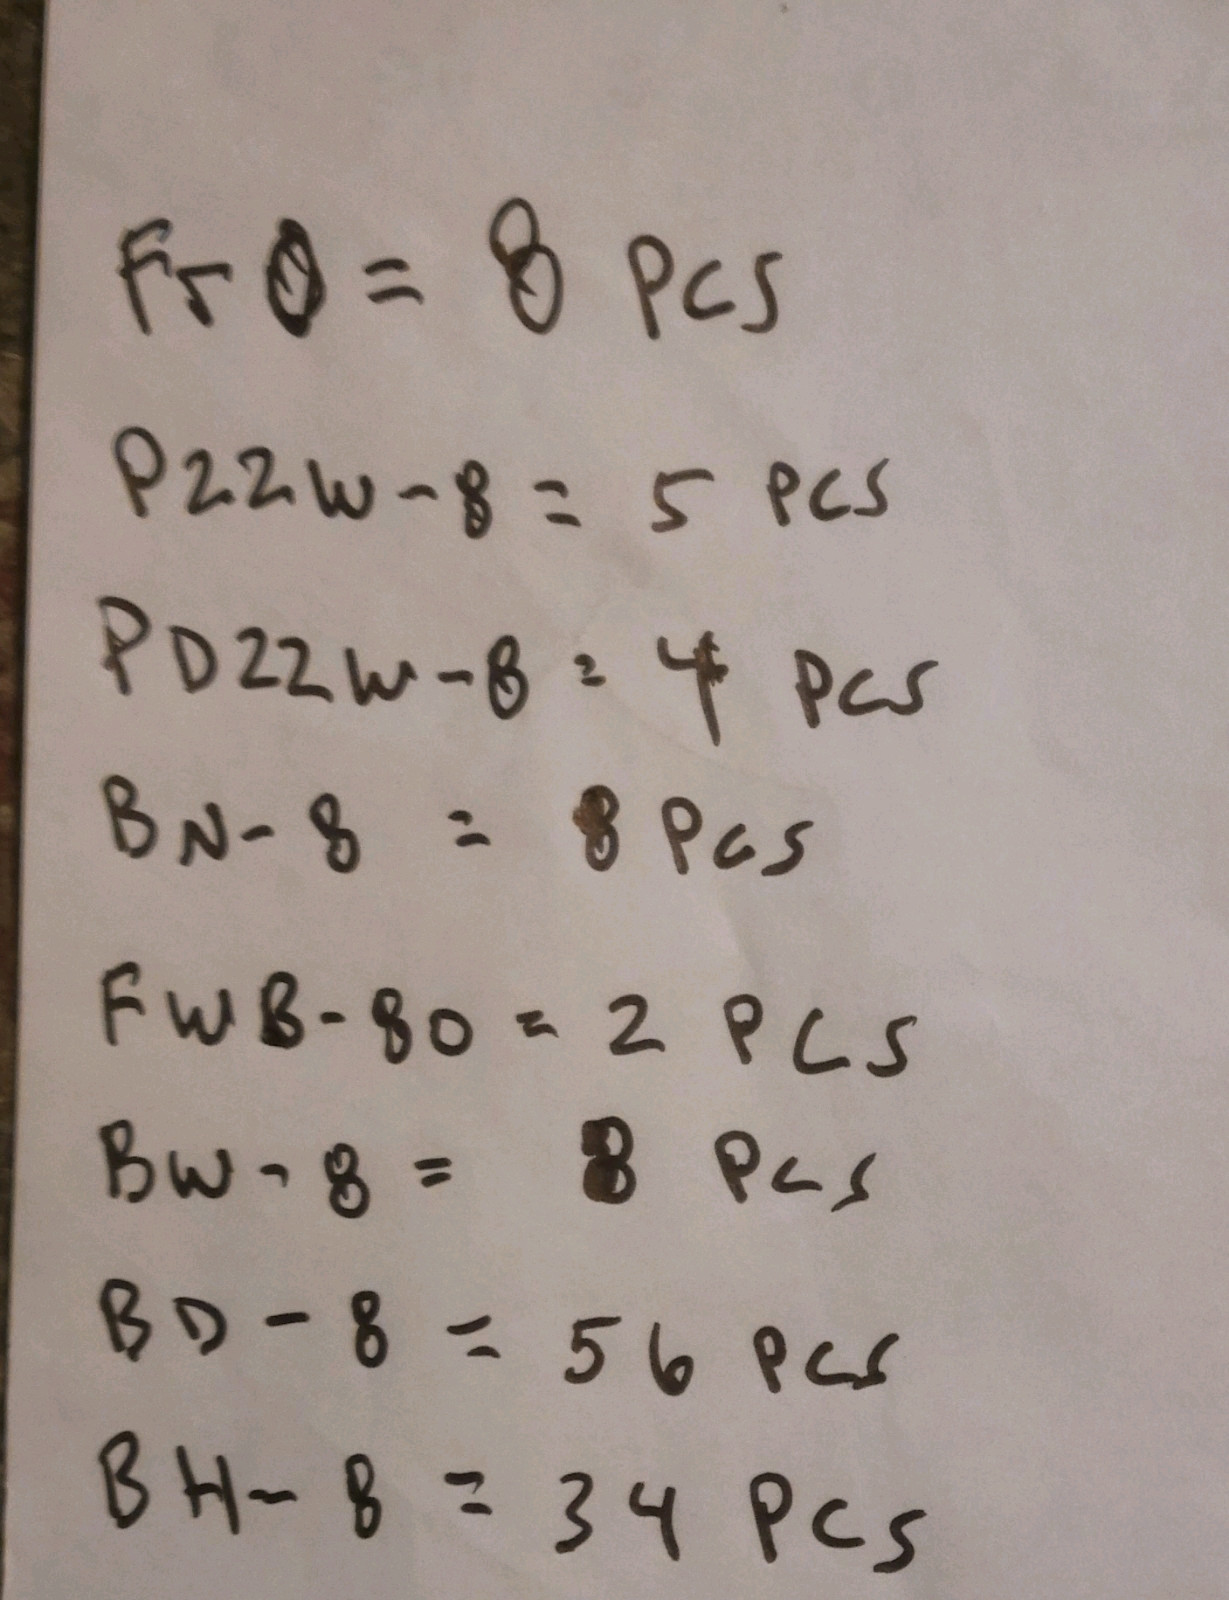 = 8 PCS
P22W-8 = 5 PCS
PD22W-8 = 4 PCS
BN-8 = 8 PCS
FWB-80 = 2 PCS
BW-8 = 8 PCS
BD-8 = 56 PCS
BH-8 = 34 PCS